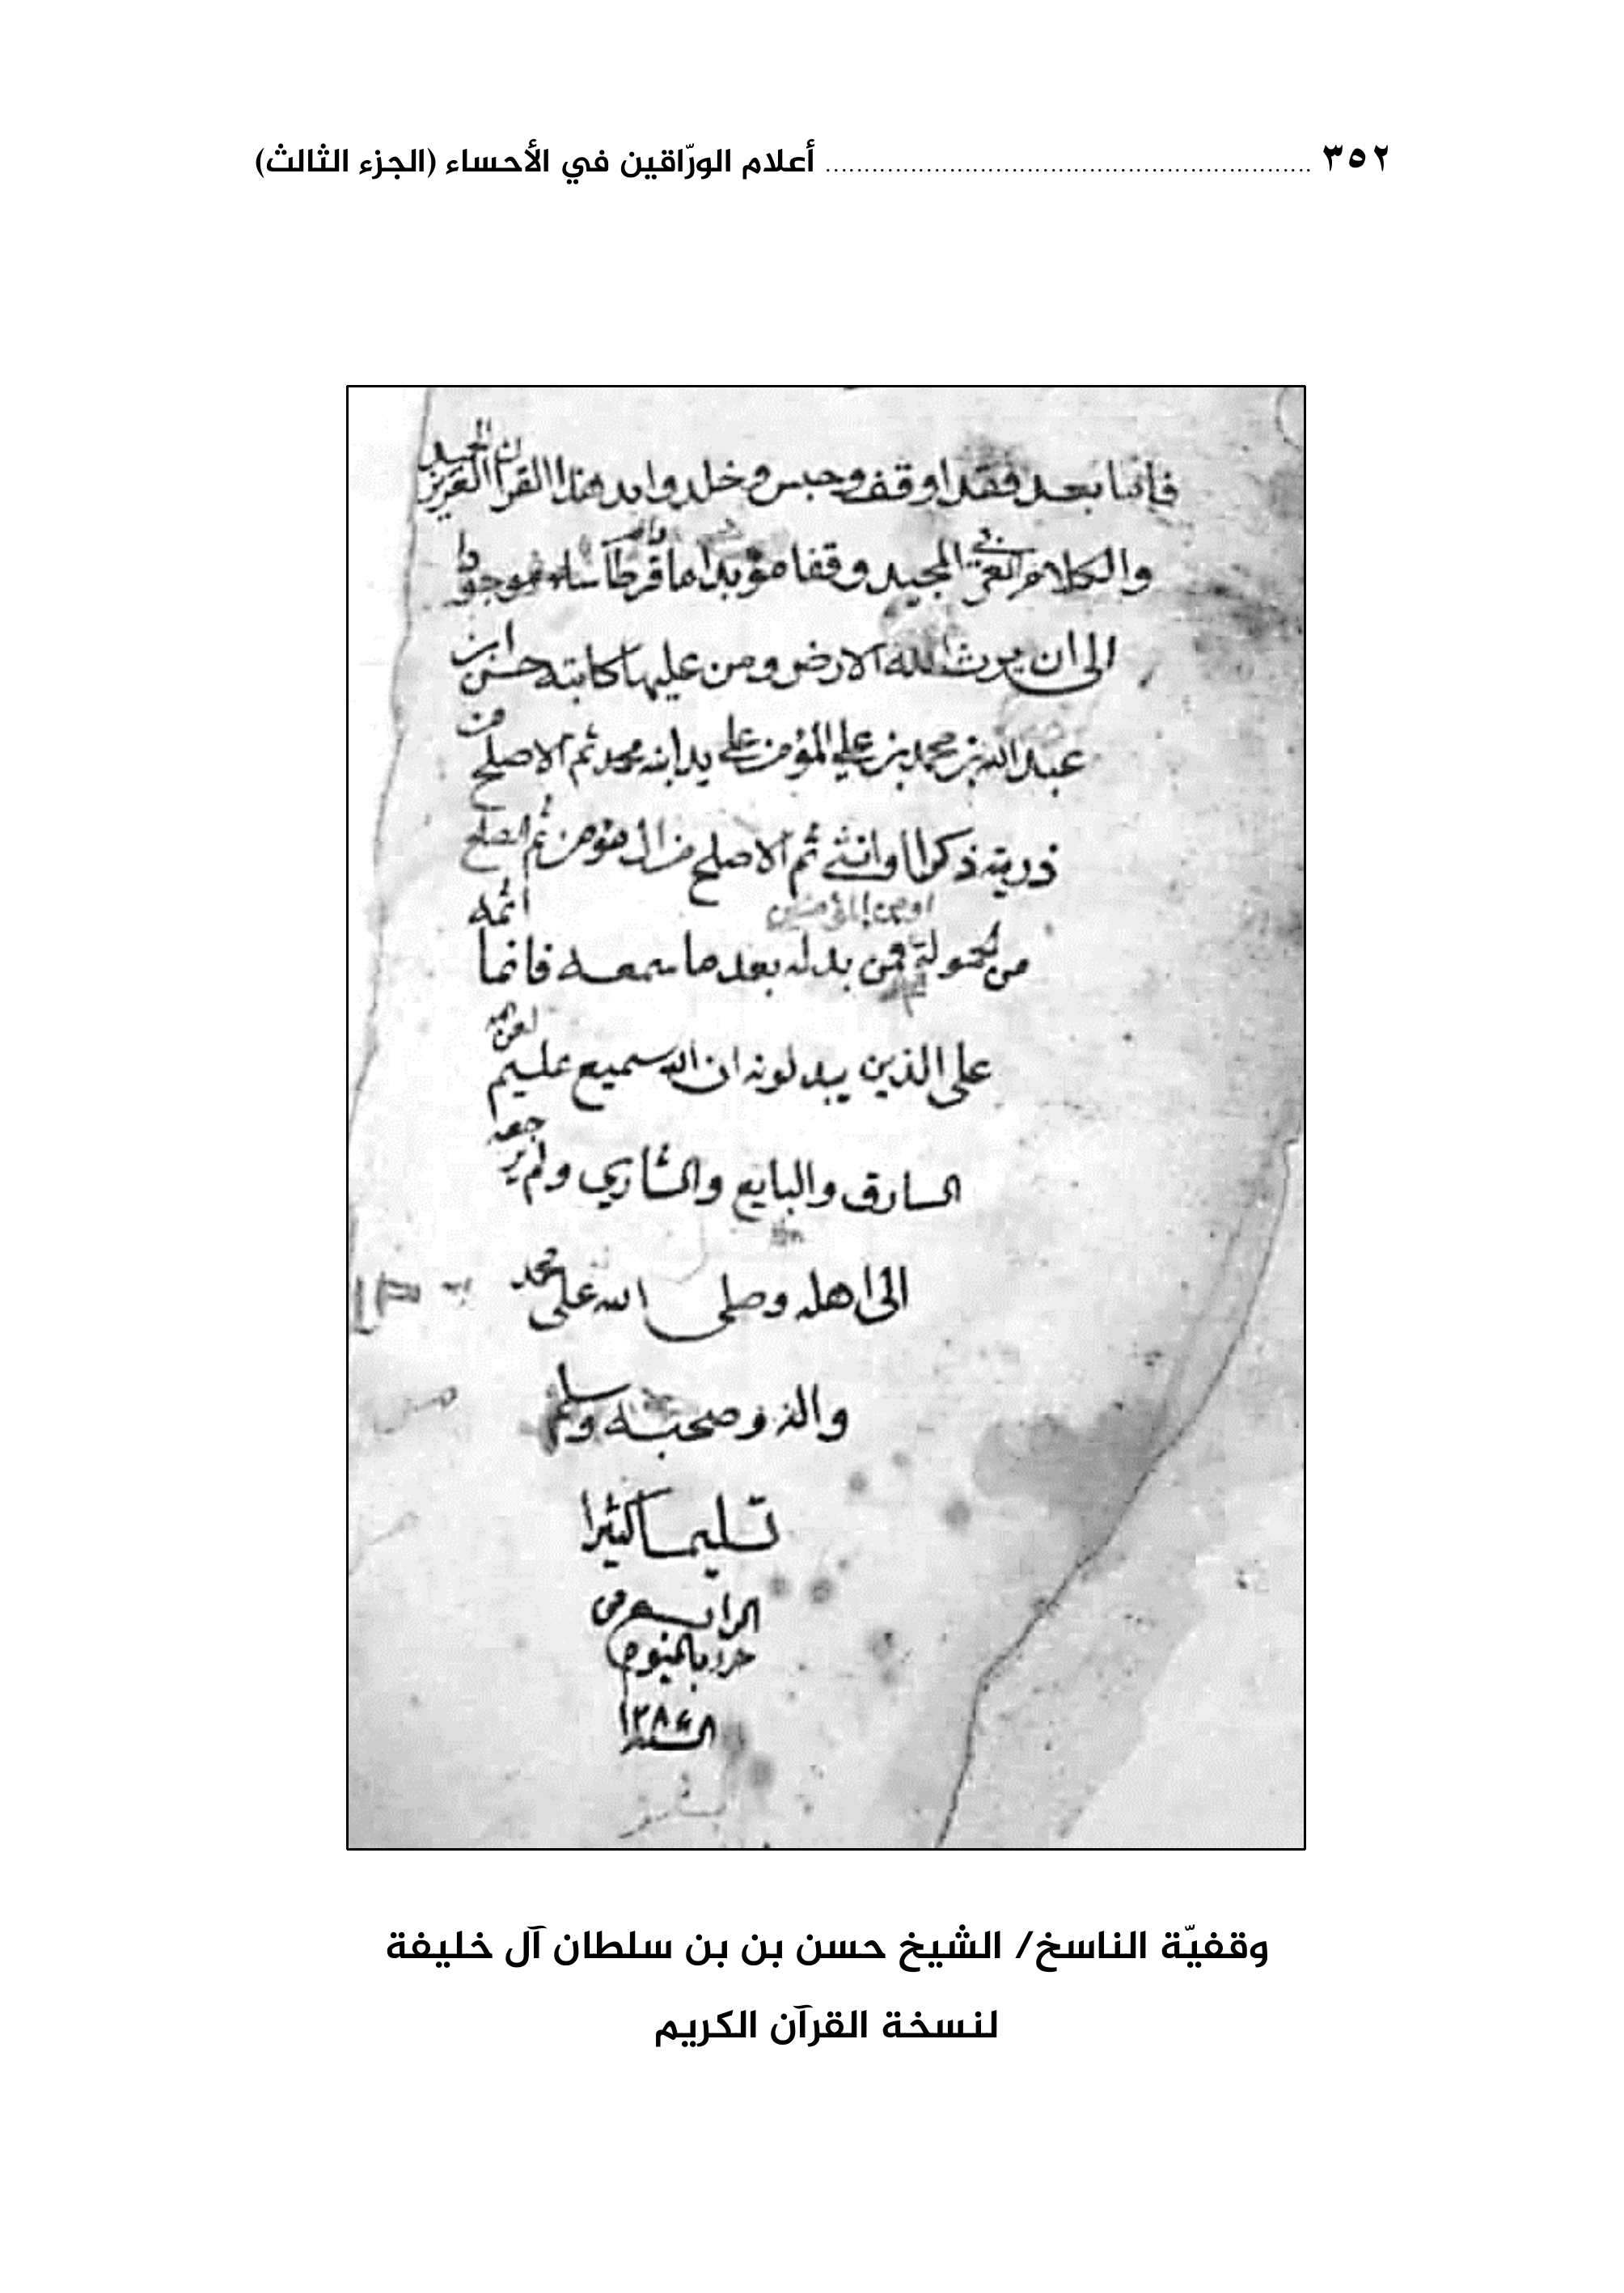 ٣٥٢ ........ أعلام الورّاقين في الأحساء (الجزء الثالث)
فإنما بعد فقد اوقف وحبس وخلد وابد هذا القرآن العزيز المجيد
والكلام العربي المجيد وقفا مؤبدا ما قرطاسا موجودا
الى ان يرث الله الارض ومن عليها كاتبه حسن ابن
عبد الله بن محمد بن علي المؤمن على يد ابنه محمد ثم الاصلح من
ذريته ذكرا او انثى ثم الاصلح من ال مؤمن ثم الصلح
من فمن بدله بعد ما سمعه فانما اثمه
على الذين يبدلونه ان الله سميع عليم لعن الله
السارق والبايع والشاري ولم يرجعه
الى اهله وصلى الله على محمد
واله وصحبه وسلم
تسليما كثيرا
الرابع من
حرر باليوم
السنة
وقفيّة الناسخ/ الشيخ حسن بن بن سلطان آل خليفة
لنسخة القرآن الكريم